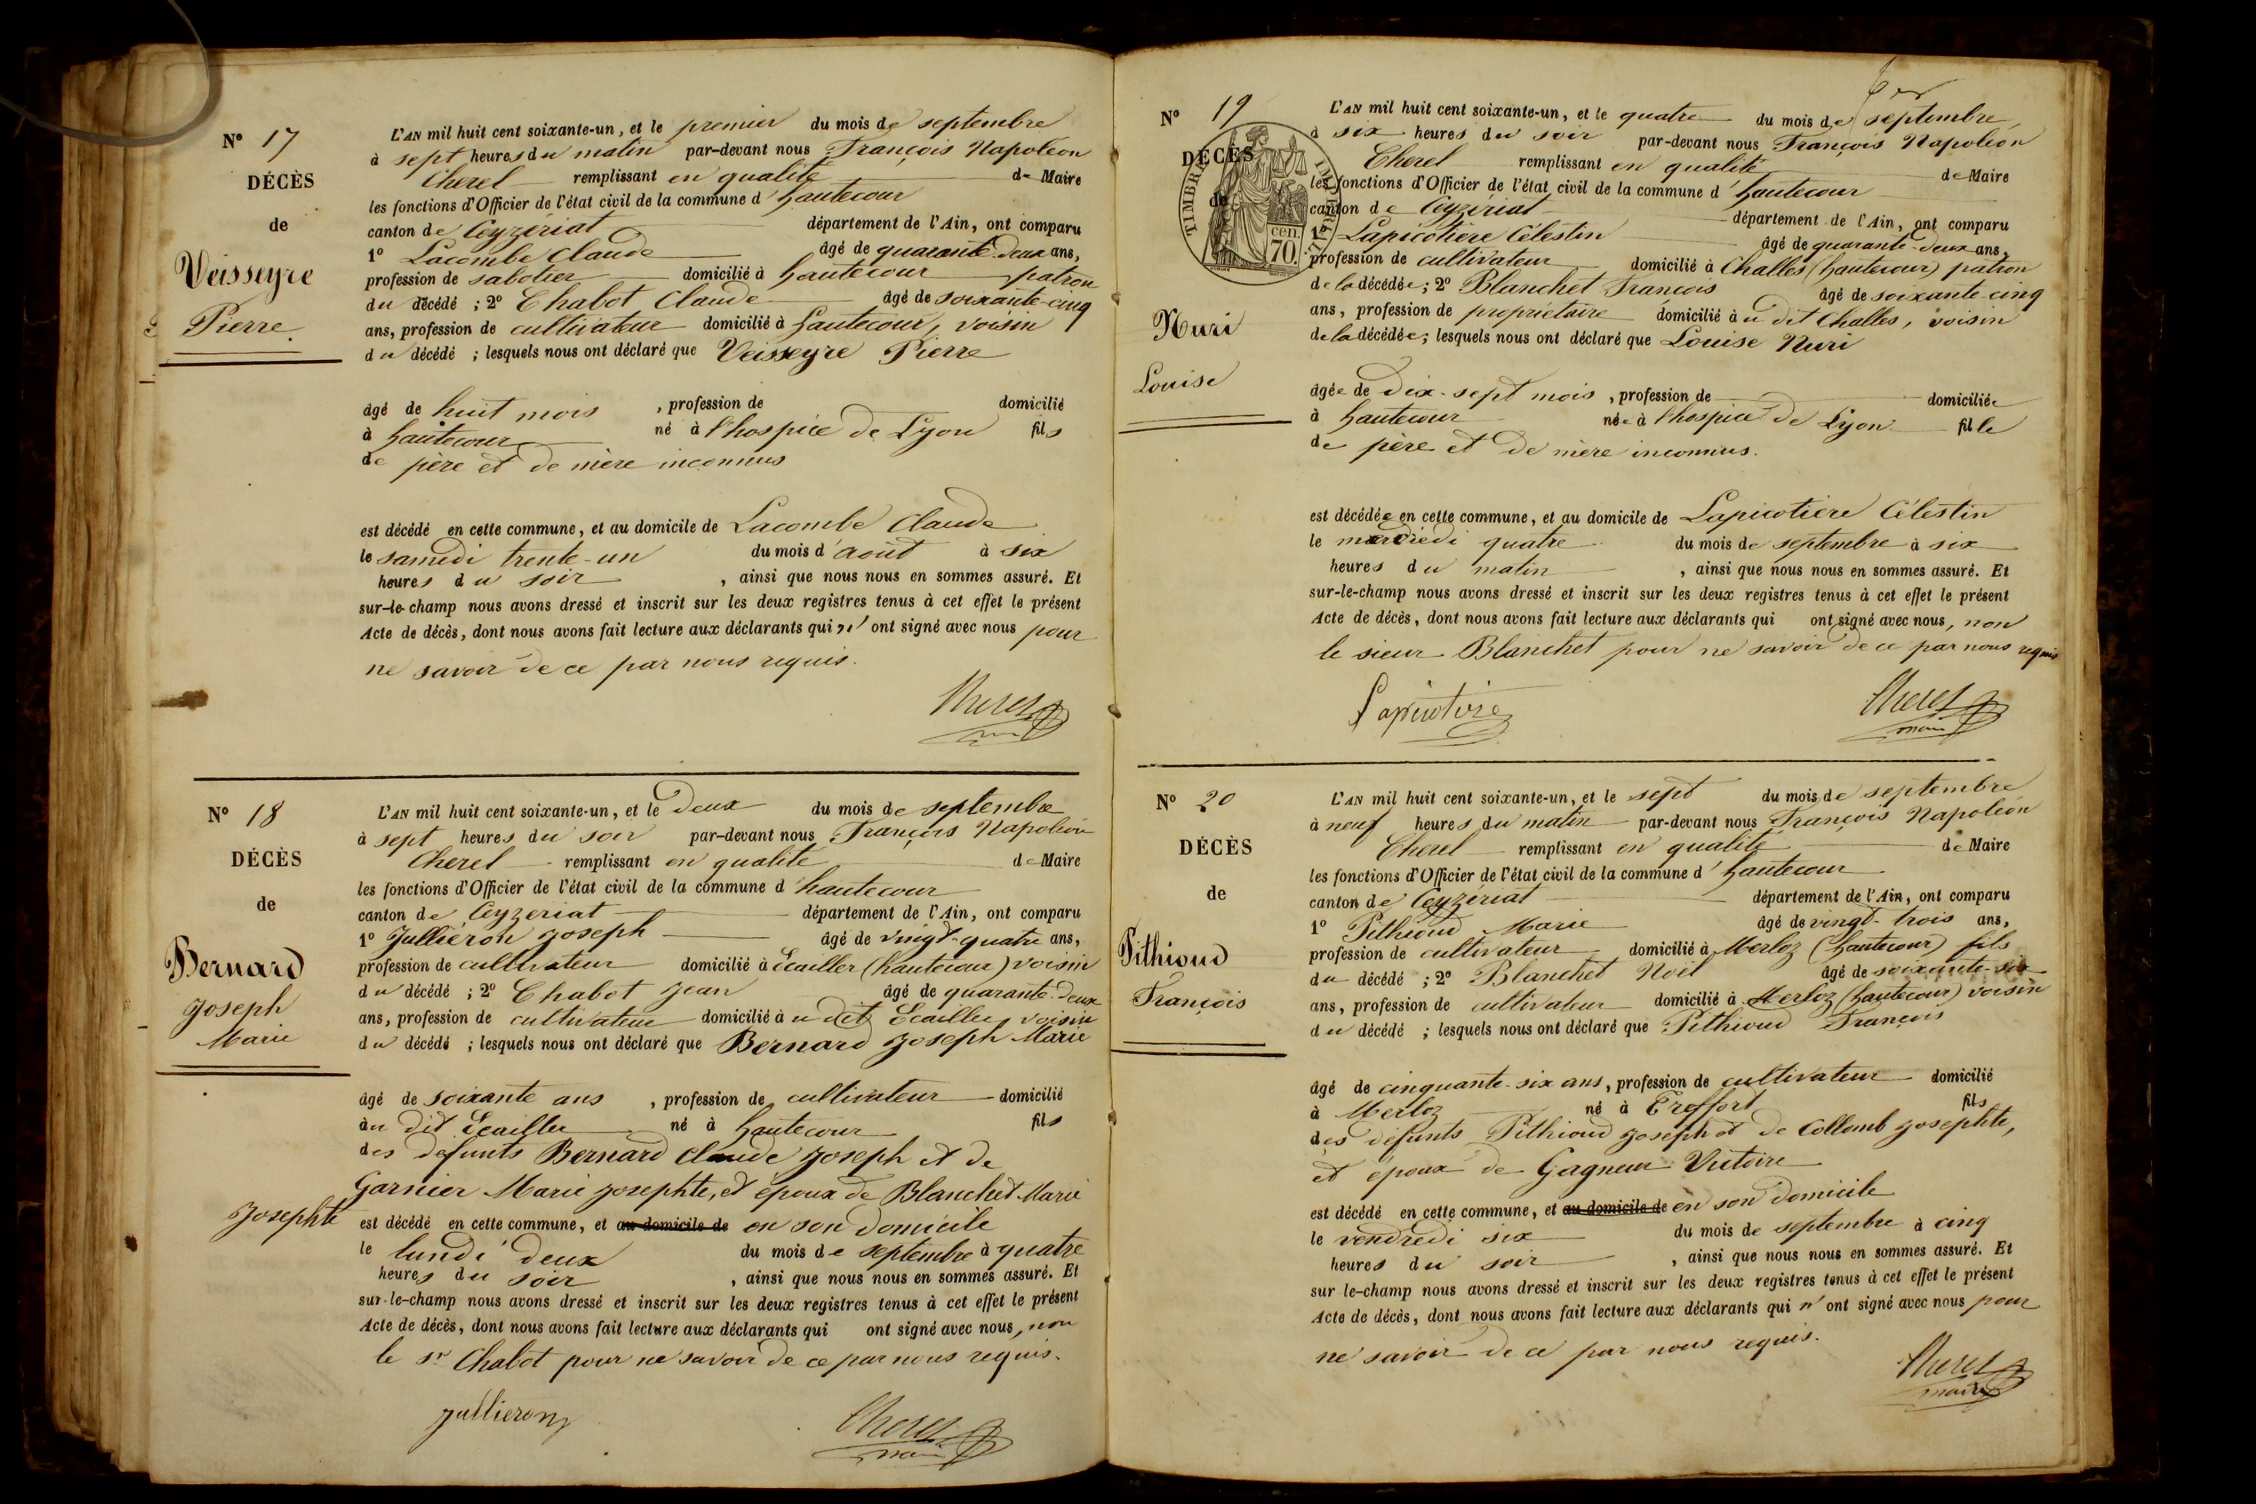 N° 17
DÉCÈS
de
Veisseyre
Pierre
L'AN mil huit cent soixante-un, et le premier du mois de septembre
à sept heures du matin par-devant nous François Napoléon
Cherel remplissant en qualité de Maire
les fonctions d'Officier de l'état civil de la commune d'hautecour
canton de Ceyzériat département de l'Ain, ont comparu
1° Lacombe Claude âgé de quarante deux ans,
profession de sabotier domicilié à hautecour patron
du décédé ; 2° Chabot Claude âgé de soixante-cinq
ans, profession de cultivateur domicilié à hautecour, voisin
du décédé ; lesquels nous ont déclaré que Veisseyre Pierre
âgé de huit mois , profession de domicilié
à hautecour né à l'hospice de Lyon fils
de père et de mère inconnus
est décédé en cette commune, et au domicile de Lacombe Claude
le samedi trente-un du mois d'août à six
heures du soir , ainsi que nous nous en sommes assuré. Et
sur-le-champ nous avons dressé et inscrit sur les deux registres tenus à cet effet le présent
Acte de décès, dont nous avons fait lecture aux déclarants qui n'ont signé avec nous pour
ne savoir de ce par nous requis.
Cherel
N° 18
DÉCÈS
de
Bernard
Joseph
Marie
L'AN mil huit cent soixante-un, et le deux du mois de septembre
à sept heures du soir par-devant nous François Napoléon
Cherel remplissant en qualité de Maire
les fonctions d'Officier de l'état civil de la commune d hautecour
canton de Ceyzeriat département de l'Ain, ont comparu
1° Jullieron Joseph âgé de vingt-quatre ans,
profession de cultivateur domicilié à Ecailler (hautecour) voisin
du décédé ; 2° Chabot Jean âgé de quarante-deux
ans, profession de cultivateur domicilié à u dit Ecailler voisin
du décédé ; lesquels nous ont déclaré que Bernard Joseph Marie
âgé de soixante ans , profession de cultivateur domicilié
àu dit Ecailler né à hautecour fils
des défunts Bernard Claude Joseph et de
Garnier Marie Josephte, et époux de Blanchet Marie
Josephte
est décédé en cette commune, et au domicile de en son domicile
le lundi deux du mois de septembre à quatre
heures du soir , ainsi que nous nous en sommes assuré. Et
sur-le-champ nous avons dressé et inscrit sur les deux registres tenus à cet effet le présent
Acte de décès, dont nous avons fait lecture aux déclarants qui ont signé avec nous, non
le sr Chabot pour ne savoir de ce par nous requis.
Jullieron
Cherel
maire
N° 19
DÉCÈS
de
TIMBRE IMPÉRIAL
70. cen.
Nuri
Louise
L'AN mil huit cent soixante-un, et le quatre du mois de septembre
à six heures du soir par-devant nous François Napoléon
Cherel remplissant en qualité de Maire
les fonctions d'Officier de l'état civil de la commune d'hautecour
canton de Ceyzériat département de l'Ain, ont comparu
1° Lapicotière Célestin âgé de quarante-deux ans,
profession de cultivateur domicilié à Challes (hautecour) patron
de la décédée ; 2° Blanchet François âgé de soixante-cinq
ans, profession de propriétaire domicilié à u dit Challes, voisin
de la décédée ; lesquels nous ont déclaré que Louise Nuri
âgée de dix-sept mois , profession de domiciliée
à hautecour née à l'hospice de Lyon fille
de père et de mère inconnus.
est décédée en cette commune, et au domicile de Lapicotière Célestin
le mercredi quatre du mois de septembre à six
heures du matin , ainsi que nous nous en sommes assuré. Et
sur-le-champ nous avons dressé et inscrit sur les deux registres tenus à cet effet le présent
Acte de décès, dont nous avons fait lecture aux déclarants qui ont signé avec nous, non
le sieur Blanchet pour ne savoir de ce par nous requis
Lapicotière
Cherel
maire
N° 20
DÉCÈS
de
Pithioud
François
L'AN mil huit cent soixante-un, et le sept du mois de septembre
à neuf heures du matin par-devant nous François Napoléon
Cherel remplissant en qualité de Maire
les fonctions d'Officier de l'état civil de la commune d'hautecour
canton de Ceyzériat département de l'Ain, ont comparu
1° Pithioud Marie âgé de vingt-trois ans,
profession de cultivateur domicilié à Merloz (hautecour) fils
du décédé ; 2° Blanchet Noël âgé de soixante-six
ans, profession de cultivateur domicilié à Merloz (hautecour) voisin
du décédé ; lesquels nous ont déclaré que Pithioud François
âgé de cinquante-six ans, profession de cultivateur domicilié
à Merloz né à Treffort fils
des défunts Pithioud Joseph et de Collomb Josephte,
et époux de Gagneur Victoire
est décédé en cette commune, et au domicile de en son domicile
le vendredi six du mois de septembre à cinq
heures du soir , ainsi que nous nous en sommes assuré. Et
sur le-champ nous avons dressé et inscrit sur les deux registres tenus à cet effet le présent
Acte de décès, dont nous avons fait lecture aux déclarants qui n'ont signé avec nous pour
ne savoir de ce par nous requis.
Cherel
maire